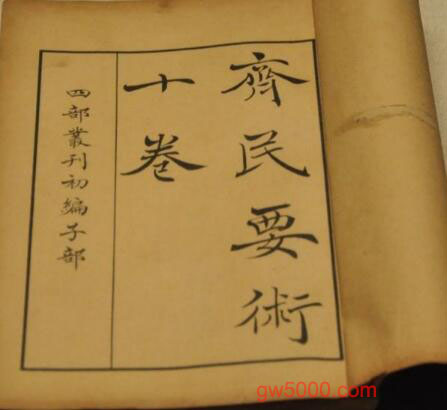 齊民要術
十卷
四部叢刊初編子部
gw5000.com